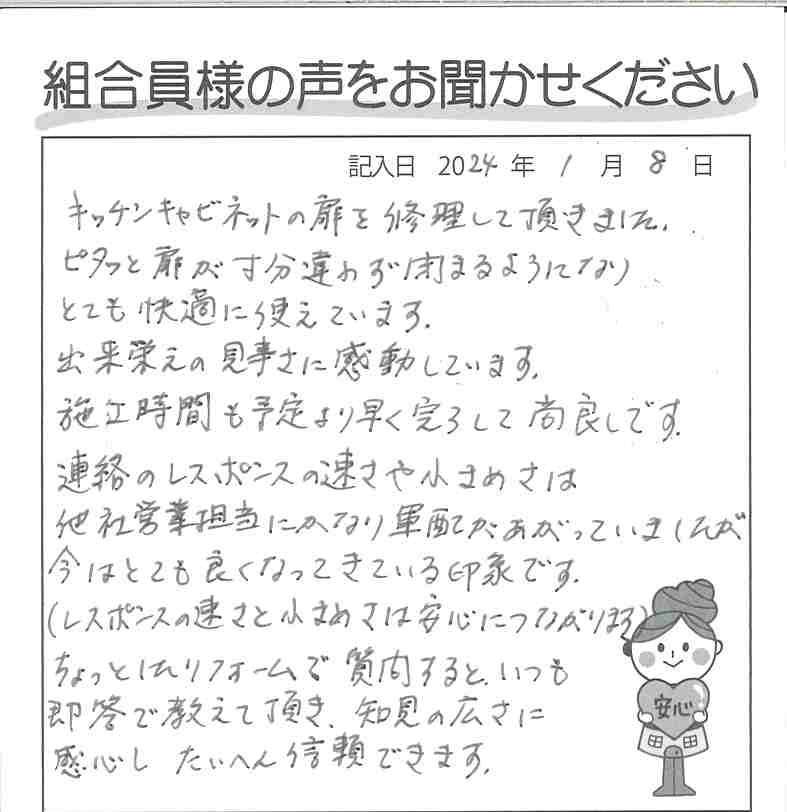 組合員様の声をお聞かせください
記入日 2024年 1月 8日
キッチンキャビネットの扉を修理して頂きました.
ピタッと扉がす分違わず閉まるようになり
とても快適に使えています.
出来栄えの見事さに感動しています.
施工時間も予定より早く完了して尚良しです.
連絡のレスポンスの速さや小まめさは
他社営業担当にかなり軍配があがっていましたが
今はとても良くなってきている印象です.
(レスポンスの速さと小まめさは安心につながります)
ちょっとしたリフォームで質問すると、いつも
即答で教えて頂き、知見の広さに
感心し たいへん信頼できます.
安心